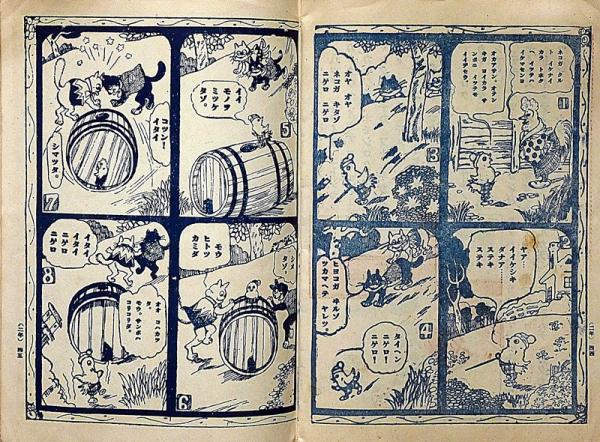 1
ネコガ クル
ト イケナイ
カラ トホク
ヘ イツテハ
イケマセンヨ
オカアサン
2
アア……
イイケシキ
ダナア……
ステキ
ステキ
3
オヤ オヤ
ネコガ キタゾ
ニゲロ
ニゲロ
4
ヒヨコガ ヰルゾ
ツカマヘテ
ヤレッ。
タイヘン
ニゲロー
ニゲロ!
(二年) 四四
5
イイ
モノヲ
ミツケ
タゾ。
6
モウ
ヒトツ
カミダ
7
コツンー
イタイ
シマツタ。
8
イタイ
イタイ
ニゲロ
ニゲロ
オオ コハカツ
タ。
モウ、サンポハ
コリコリダ。
(二年) 四五